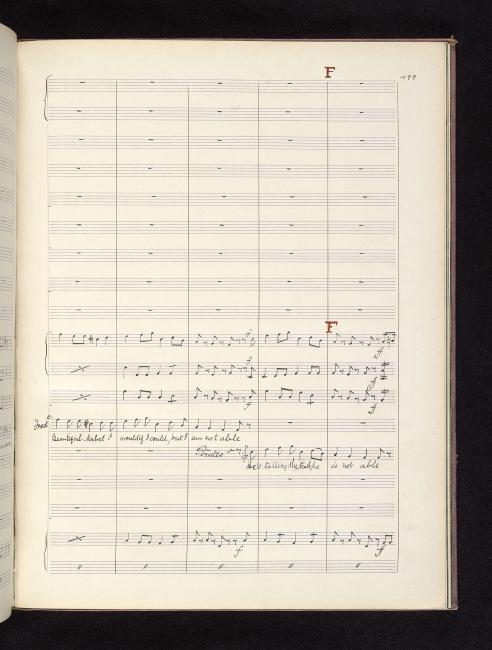 F
F
f
f
f
ff
ff
ff
Fredc
Beautiful Mabel I would if I could, but I am not able
Pirates
He's telling the truth he is not able
f
f